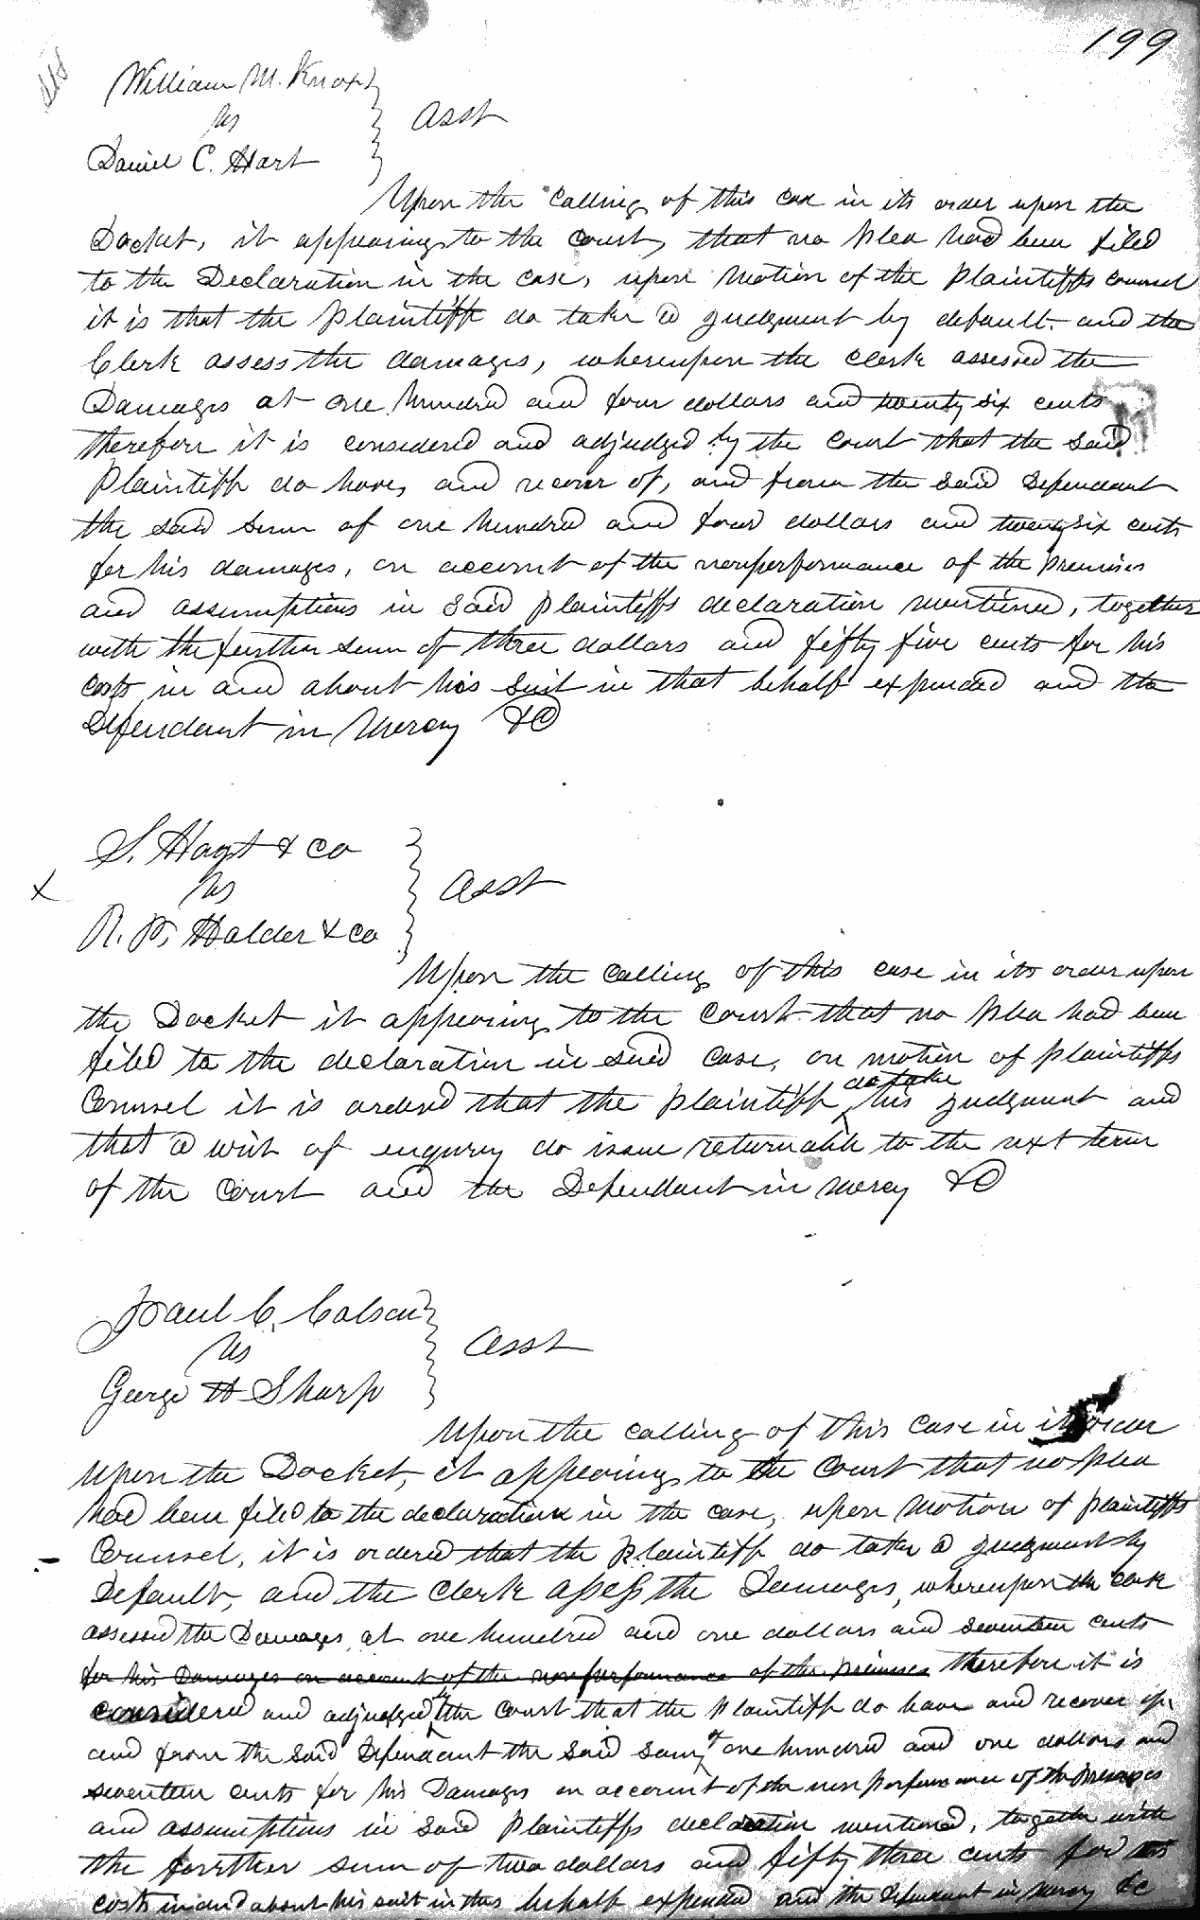 199
William M. Knox
vs
Daniel C. Hart
Asst
Upon the calling of this case in its order upon the
Docket, it appearing to the court, that no plea had been filed
to the Declaration in the case, upon motion of the plaintiffs counsel
it is that the plaintiff do take a judgment by default. and the
Clerk assess the damages, whereupon the clerk assessed the
Damages at one hundred and four dollars and twenty six cents
therefore it is considered and adjudged by the court that the said
Plaintiff do have, and recover of, and from the said Defendant
the said sum of one hundred and four dollars and twenty six cents
for his damages, on account of the nonperformance of the premises
and assumptions in said plaintiffs declaration mentioned, together
with the further sum of three dollars and fifty five cents for his
costs in and about his suit in that behalf expended and the
Defendant in mercy &C
S. Hoyt & Co
X
vs
R. P. Halder & Co
Asst
Upon the calling of this case in its order upon
the Docket it appearing to the Court that no plea had been
filed to the declaration in said case, on motion of plaintiffs
do take
Counsel it is ordered that the plaintiff his judgment and
that a writ of enquiry do issue returnable to the next term
of the Court and the Defendant in mercy &C
Paul C. Colson
vs
George H Sharp
Asst
Upon the calling of this case in its order
upon the Docket, it appearing to the Court that no plea
had been filed to the declaration in the case, upon motion of plaintiffs
Counsel, it is ordered that the plaintiff do take a judgment by
Default, and the Clerk assess the Damages, whereupon the clerk
assessed the Damages at one hundred and one dollars and seventeen cents
for his Damages on account of the nonperformance of the premises therefore it is
considered and adjudged by the Court that the Plaintiff do have and recover of,
and from the said Defendant the said sum of one hundred and one dollars and
seventeen cents for his Damages on account of the non performance of the premises
and assumptions in said Plaintiffs declaration mentioned, together with
the further sum of two dollars and fifty three cents for his
costs in and about his suit in this behalf expended and the Defendant in mercy &c